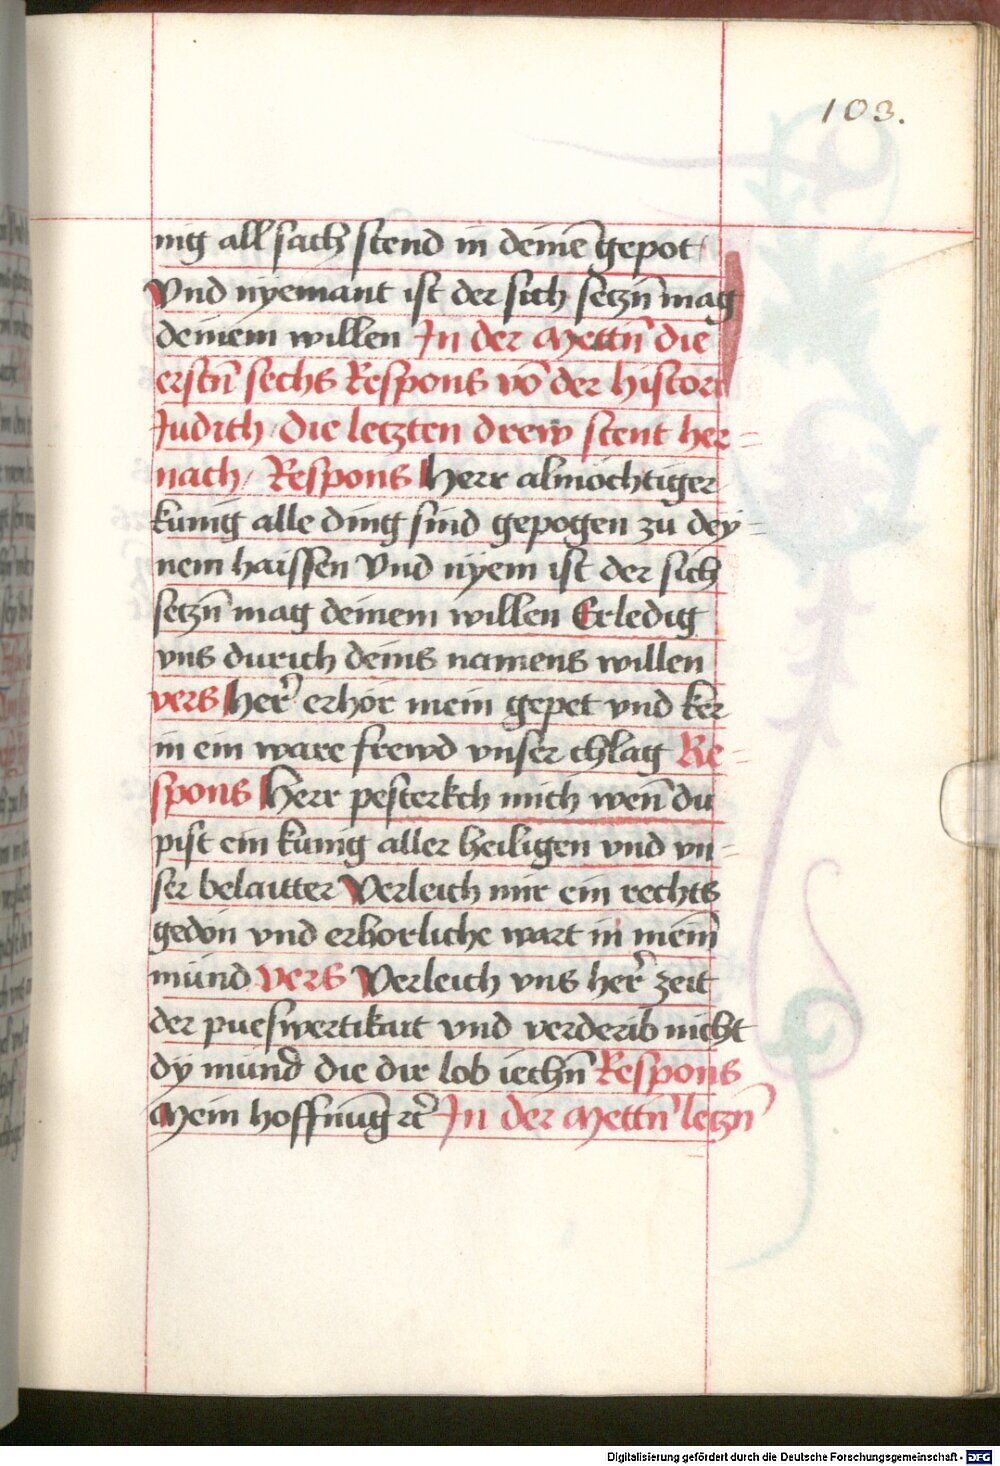 103.
nig all sach stend in deinē gepot
Vnd nyemant ist der sich seczn̄ mag
deinem willen In der Mettn̄ die
erstn̄ sechs Respons vō der histori
Judith / die letzten drew stent her=
nach / Respons Herr almöchtiger
künig alle ding sind gepogen zu dey=
nem haissen Vnd nyem ist der sich
seczn̄ mag deinem willen Erledig
vns durich deins namens willen
vers Her̄ erhör mein gepet vnd ker
in ein ware frewd vnser chlag Re=
spons Herr pesterkch mich wen̄ du
pist ein künig aller heiligen vnd vn=
ser belaitter Verleich mir ein rechts
gedön vnd erhorliche wart in meim̄
münd vers Verleich vns her̄ zeit
der pueswertikait vnd verderib nicht
dy münd die dir lob iechn̄ Respons
Mein hoffnūg ꝛc̄ In der Mettn̄ leczn̄
Digitalisierung gefördert durch die Deutsche Forschungsgemeinschaft - DFG